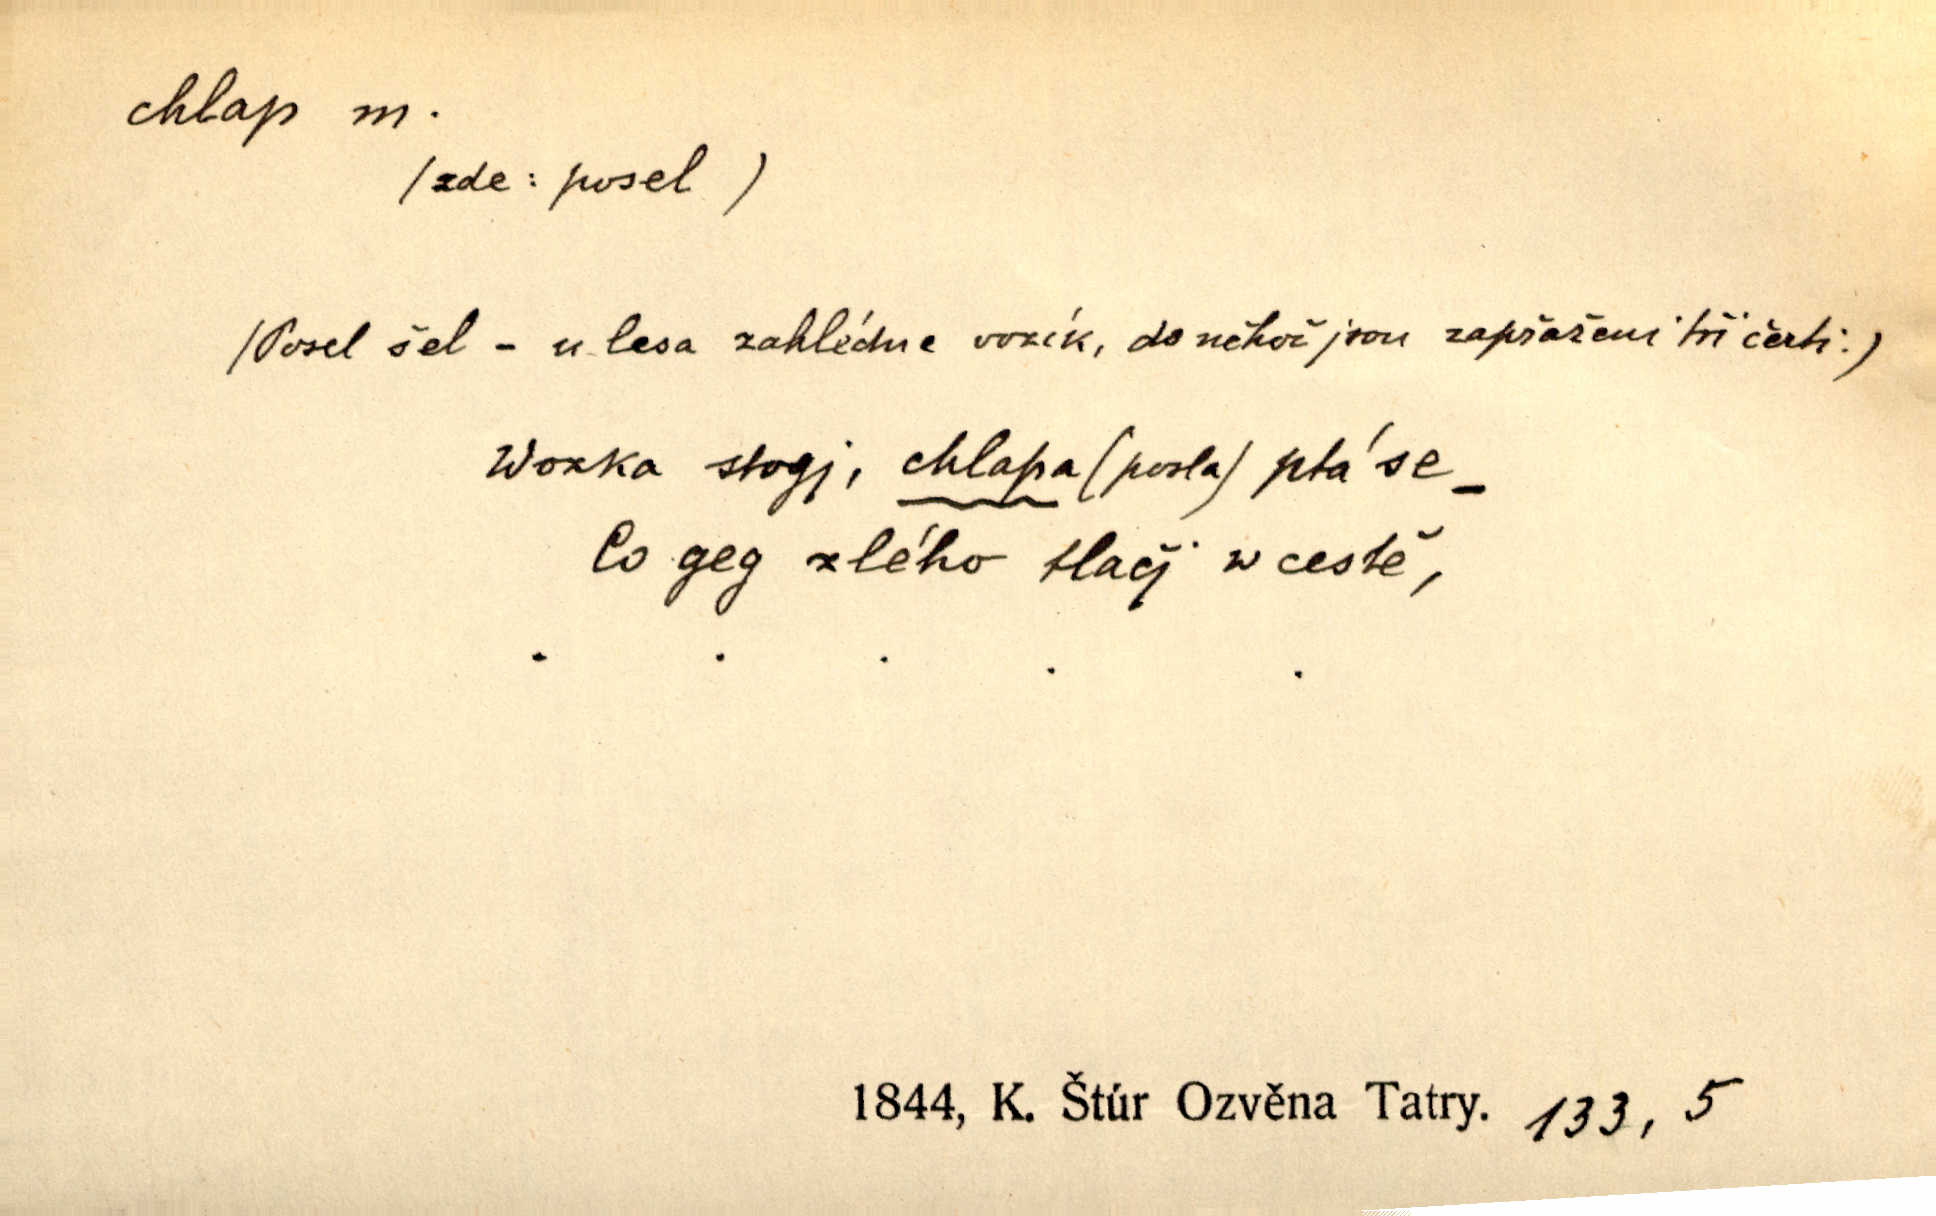 chlap m.
(zde: posel)
(Posel šel - u lesa zahlédne vozík, do něhož jsou zapřaženi tři čerti:)
Wozka stogj, chlapa (posla) ptá se_
Co geg zlého tlačj w cestě,
. . . . .
1844, K. Štúr Ozvěna Tatry. 133, 5